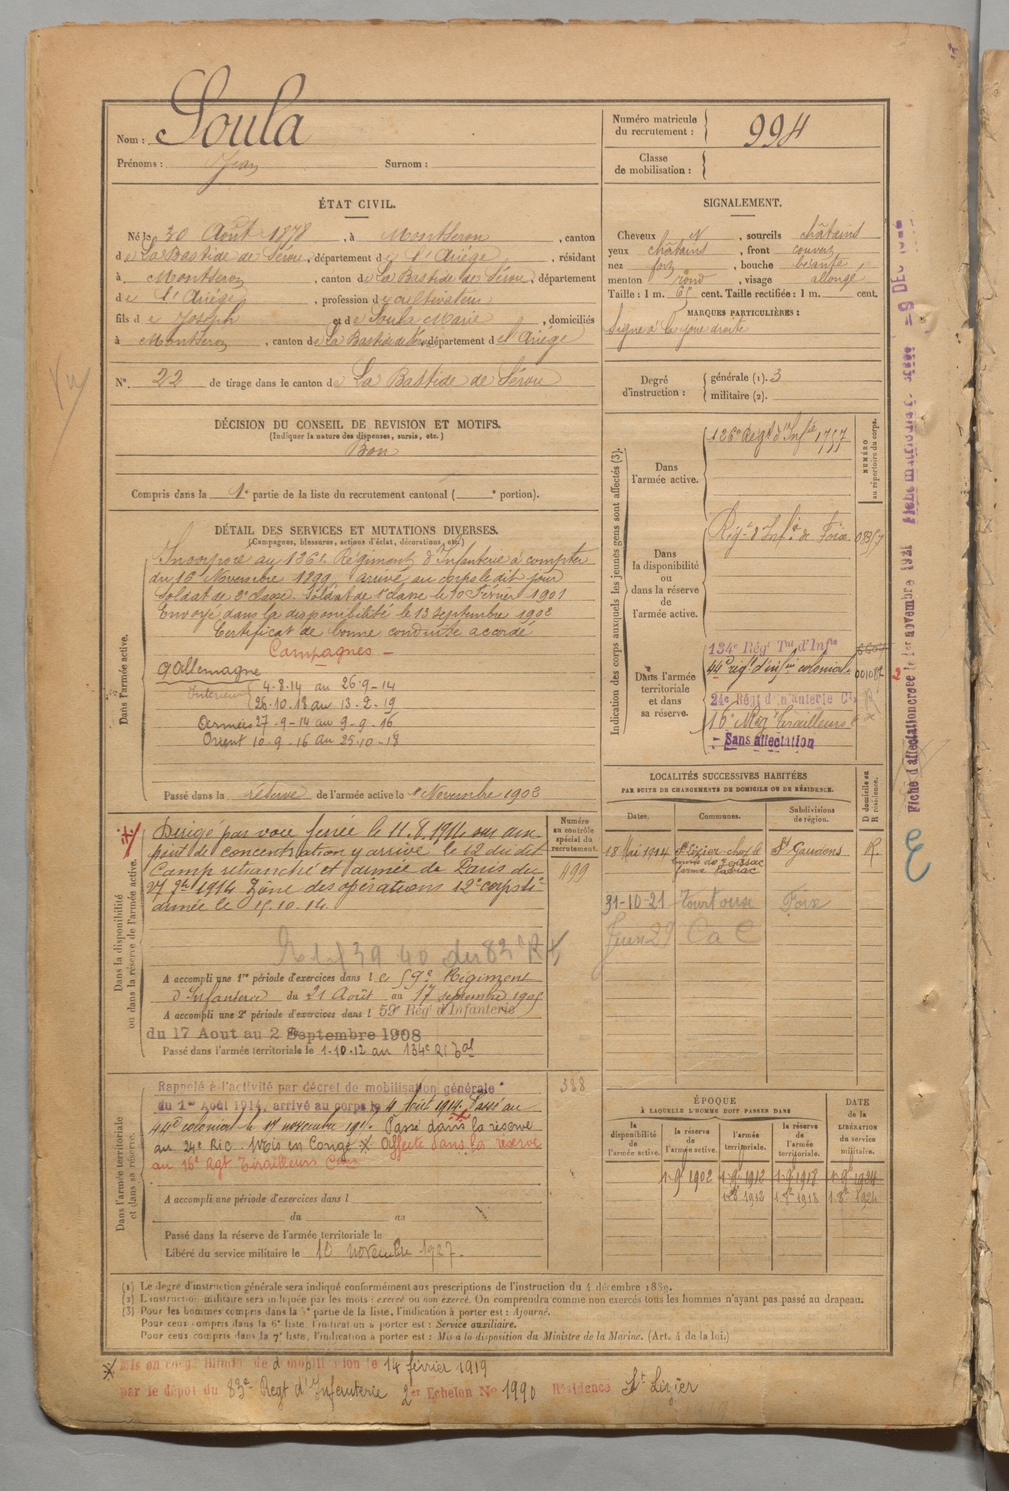 Nom : Soula
Prénoms : Jean Surnom :
Numéro matricule du recrutement : 994
Classe de mobilisation :
ÉTAT CIVIL.
Né le 30 Août 1878, à Montseron, canton
de La Bastide de Sérou, département de l'Ariège, résidant
à Montseron, canton de La Bastide de Sérou, département
de l'Ariège, profession de cultivateur
fils de Joseph et de Soula Marie, domiciliés
à Montseron, canton de La Bastide de Sérou, département de l'Ariège
N°. 22 de tirage dans le canton de La Bastide de Sérou
SIGNALEMENT.
Cheveux N, sourcils châtains
yeux châtains, front couvert
nez fort, bouche
menton rond, visage allongé
Taille : 1 m. 65 cent. Taille rectifiée : 1 m. cent.
MARQUES PARTICULIÈRES :
Signe à la joue droite
Degré d'instruction : générale (1). 3
militaire (2).
DÉCISION DU CONSEIL DE REVISION ET MOTIFS.
(Indiquer la nature des dispenses, sursis, etc.)
Bon
Compris dans la 1e partie de la liste du recrutement cantonal ( e portion).
DÉTAIL DES SERVICES ET MUTATIONS DIVERSES.
(Campagnes, blessures, actions d'éclat, décorations, etc.)
Dans l'armée active.
Incorporé au 126e Régiment d'Infanterie à compter
du 16 Novembre 1899, arrivé au corps le dit jour
soldat de 2e classe. Soldat de 1e classe le 10 Février 1901
Envoyé dans la disponibilité le 13 septembre 1902
Certificat de bonne conduite accordé
Campagnes -
Allemagne
Intérieur 4-8-14 au 26-9-14
26-10-18 au 13-2-19
Armées 27-9-14 au 9-9-16
Orient 10-9-16 au 25-10-18
Passé dans la réserve de l'armée active le 1e Novembre 1902
Indication des corps auxquels les jeunes gens sont affectés (3).
NUMÉRO au répertoire du corps.
Dans l'armée active.
126e Regt d'Infie
Dans la disponibilité ou dans la réserve de l'armée active.
Régt d'Infie de Foix
Dans l'armée territoriale et dans sa réserve.
134e Régt Tal d'Infie
44e régt d'infie colonial
24e Régt d'infanterie Cle
16e Tirailleurs
Sans affectation
Fiche d'affectation créée le 1er novembre 1921
LOCALITÉS SUCCESSIVES HABITÉES
PAR SUITE DE CHANGEMENTS DE DOMICILE OU DE RÉSIDENCE.
Dates. Communes. Subdivisions de région. D domicile ou R résidence.
18 Mai 1904 St Lizier St Gaudens R.
31-10-21 Tourtouse Foix
Dans la disponibilité ou dans la réserve de l'armée active.
Numéro au contrôle spécial du recrutement.
499
Dirigé par voie ferrée le 11.8.1914 sur un
point de concentration y arrive le 12 du dit
Camp retranché et armée de Paris du
27 1914 Zone des opérations 12e corps
armée le 15.10.14.
A accompli une 1re période d'exercices dans le 59e Régiment
d'Infanterie du 21 Août au 17 septembre 1905
A accompli une 2e période d'exercices dans l 59e Rég' d'Infanterie
du 17 Aout au 2 Septembre 1908
Passé dans l'armée territoriale le 1-10-12 au 134e RI Tal
Dans l'armée territoriale et dans sa réserve.
388
Rappelé à l'activité par décret de mobilisation générale
du 1er Août 1914, arrivé au corps le 4 Août 1914. Passé au
44e colonial le 17 novembre 1914. Passé dans la réserve
au 24e RIC. Mis en Congé X Affecté dans la réserve
au 16e Rgt Tirailleurs
A accompli une période d'exercices dans l
du au
Passé dans la réserve de l'armée territoriale le
Libéré du service militaire le 10 novembre 1927.
ÉPOQUE
À LAQUELLE L'HOMME DOIT PASSER DANS
DATE de la LIBÉRATION du service militaire.
la disponibilité de l'armée active. la réserve de l'armée active. l'armée territoriale. la réserve de l'armée territoriale.
1 9e 1902 1 9e 1912 1 9e 1918 1 9e 1924
1 8e 1912 1 8e 1918 1 8e 1924
(1) Le degré d'instruction générale sera indiqué conformément aux prescriptions de l'instruction du 4 décembre 1889.
(2) L'instruction militaire sera indiquée par les mots : exercé ou non exercé. On comprendra comme non exercés tous les hommes n'ayant pas passé au drapeau.
(3) Pour les hommes compris dans la 5e partie de la liste, l'indication à porter est : Ajourné.
Pour ceux compris dans la 6e liste, l'indication à porter est : Service auxiliaire.
Pour ceux compris dans la 7e liste, l'indication à porter est : Mis à la disposition du Ministre de la Marine. (Art. 4 de la loi.)
Mis en congé illimité de démobilisation le 14 février 1919
par le dépot du 83e Regt d'Infanterie 2e Echelon No 1990 Résidence St Lizier